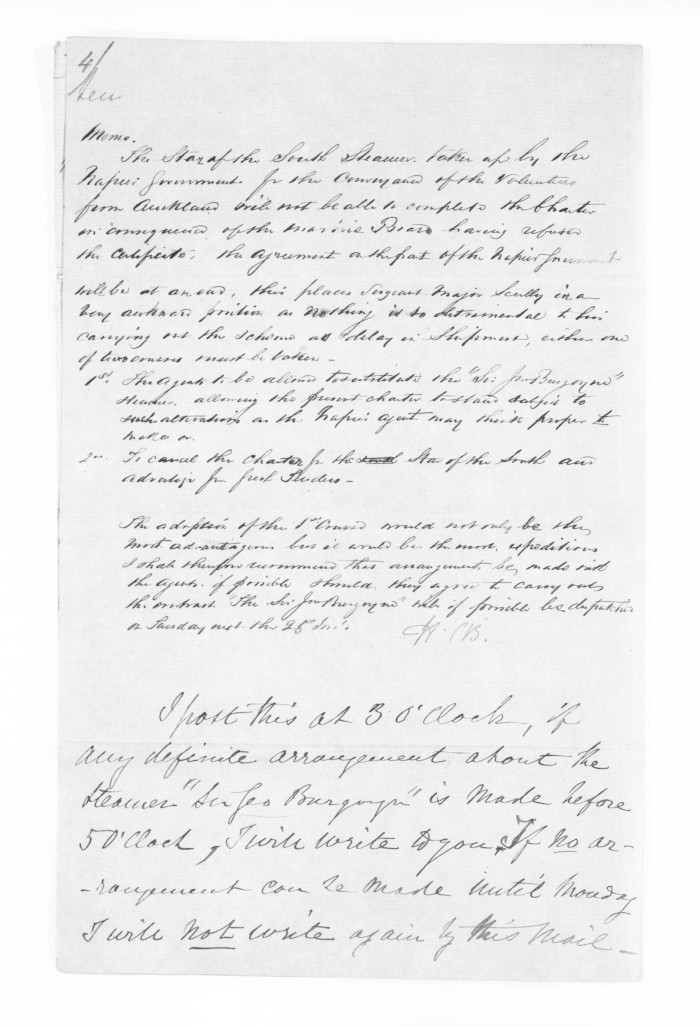 4/
Memo.
The Star of the South Steamer taken up by the
Napier Government for the Conveyance of the Volunteers
from Auckland will not be able to complete the Charter
in consequence of the Marine Board having refused
the Certificate, the Agreement on the part of the Napier Government
will be at an end, this places Sergeant Major Scully in a
very awkward position as nothing is so detrimental to his
carrying out the scheme as delay in Shipment, either one
of two courses must be taken -
1st. The Agents to be allowed to substitute the "Sir Jno Burgoyne"
steamer allowing the present charter to stand subject to
such alterations as the Napier agent may think proper to
make or.
2nd To cancel the Charter for the Star of the South and
advertise for fresh Tenders -
The adoption of the 1st Course would not only be the
most advantageous but it would be the most expeditious
I shall therefore recommend that arrangement be made with
the Agents if possible should they agree to carry out
the contract "The Sir Jno Burgoyne" will if possible be dispatched
on Tuesday next the 28 Inst.
I post this at 3 O'Clock, if
any definite arrangement about the
steamer "Sir Geo Burgoyn" is made before
5 O'Clock, I will write to you, If no ar-
-rangement can be made until Monday
I will not write again by this Mail -